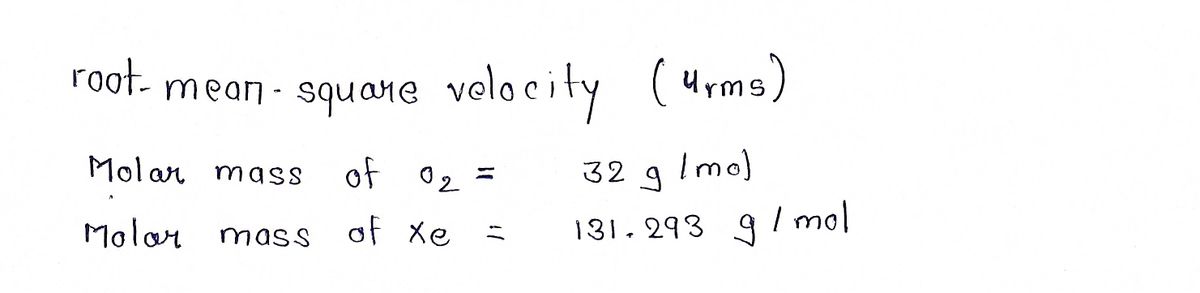 root-mean-square velocity (urms)
Molar mass of O2 = 32 g/mol
Molar mass of Xe = 131.293 g/mol